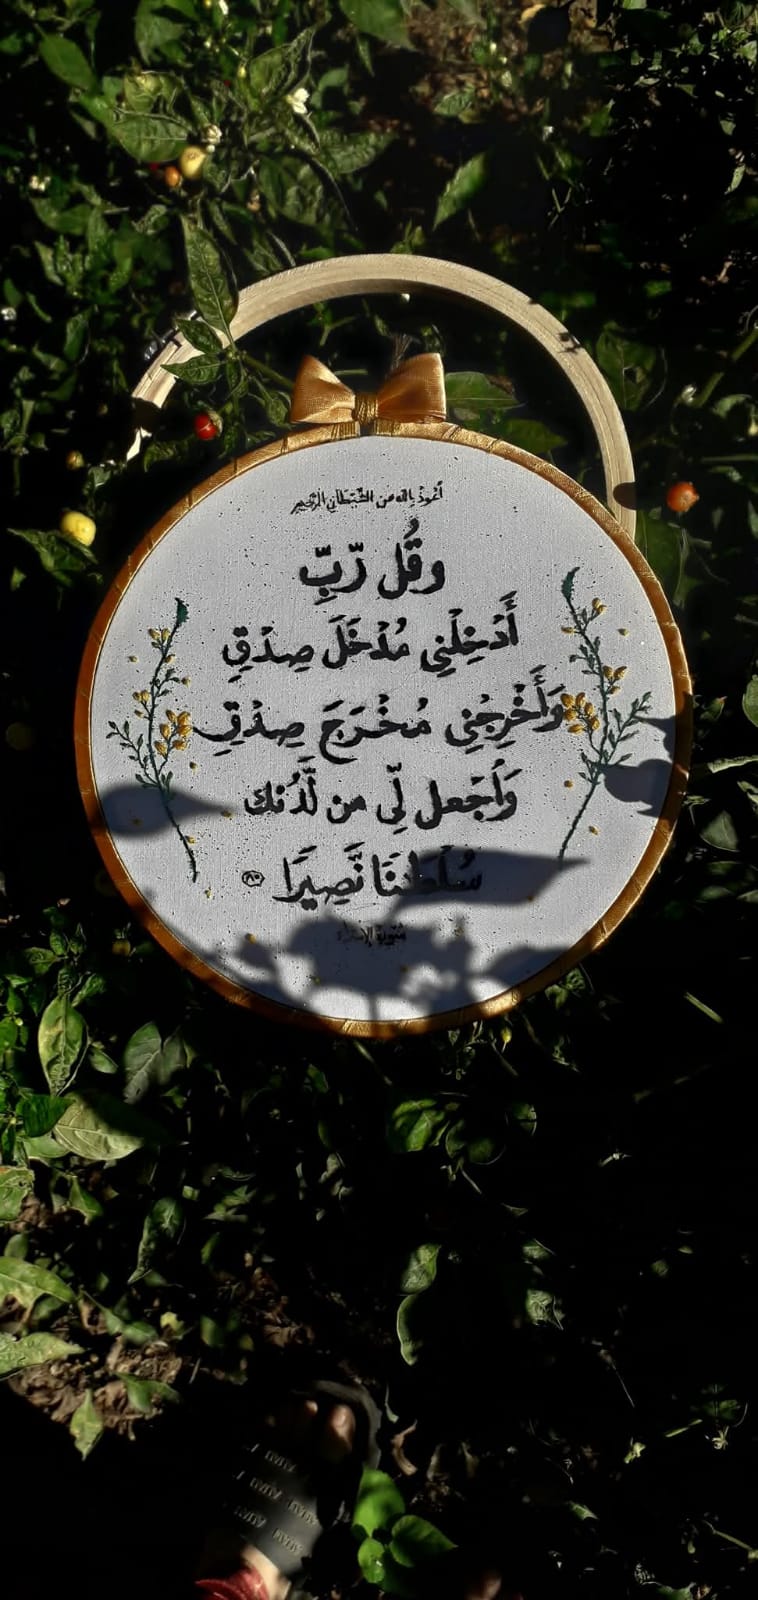 أعوذ بالله من الشيطان الرجيم
وقُل رَّبِّ
أَدۡخِلۡنِي مُدۡخَلَ صِدۡقٖ
وَأَخۡرِجۡنِي مُخۡرَجَ صِدۡقٖ
وَٱجۡعَل لِّي مِن لَّدُنكَ
سُلۡطَٰنٗا نَّصِيرٗا ٨٠
سُورَة الإسراء